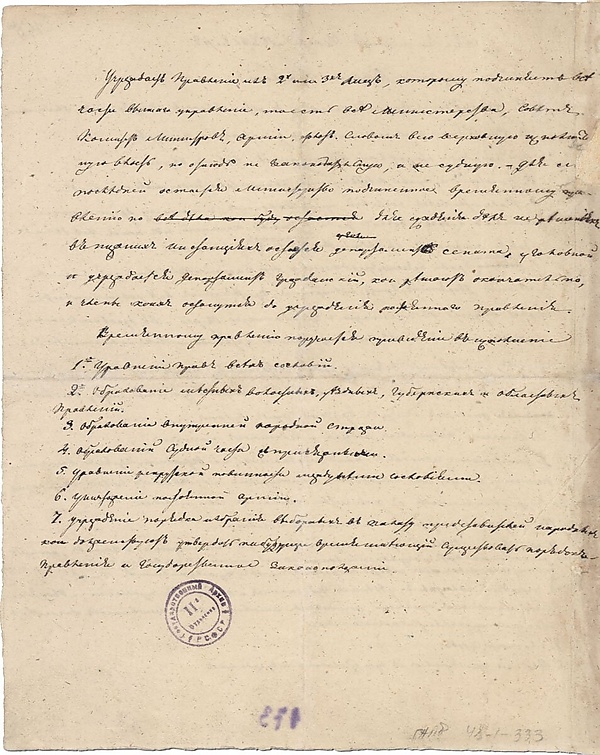 Учреждаетъ Правленіе изъ 2х или 3ех лицъ, которому подчиняетъ всѣ
части высшаго управленія, то есть всѣ Министерства, Совѣтъ,
Комитетъ Министровъ, арміи, флотъ. Словомъ всю верховную исполнитель
ную власть, но отнюдь не законодательную, а не судную. – Для се
послѣдней остается Министерство подчиненное временному пра
вленію но дѣла не рѣшенныхъ
въ нижнихъ инстанціяхъ остается департаментъ сената уголовной
и учреждается департаментъ гражданскій, кои рѣшаютъ окончательно,
и члены коихъ останутся до учрежденія постояннаго правленія.
Временному правленію поручается приведеніе въ исполненіе
1ое Уравненіе правъ всѣхъ сословій.
2ое Образованіе мѣстныхъ волостныхъ, уѣздныхъ, Губернскихъ и областныхъ
Правленій.
3. Образованіе внутренней народной стражи.
4. Образованій судной части съ присяжными.
5. Уравненіе рекрутской повинности между сословіями.
6. Уничтоженіе постоянной арміи.
7. Учрежденіе порядка избранія выборныхъ въ палату представителей народныхъ
кои долженствуютъ утвердить на будущее время имѣющій существовать порядокъ
Правленія и Государственное Законоположеніе
Государственный Архив
II е
Отделение
Р.С.Ф.С.Р.
173
48-1-333